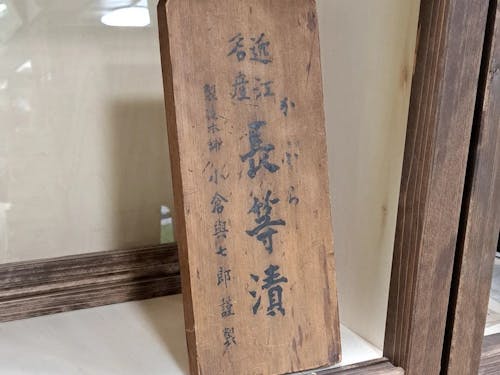 近江
名産
かぶら
長等漬
製造本舗 小倉與七郎謹製